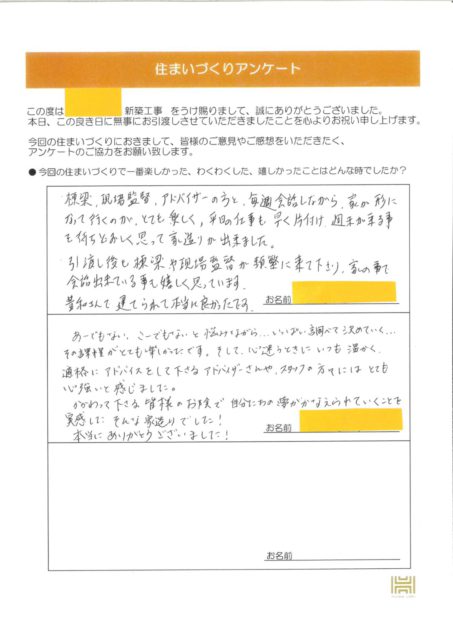 住まいづくりアンケート
この度は 新築工事 をうけ賜りまして、誠にありがとうございました。
本日、この良き日に無事にお引渡しさせていただきましたことを心よりお祝い申し上げます。
今回の住まいづくりにおきまして、皆様のご意見やご感想をいただきたく、
アンケートのご協力をお願い致します。
●今回の住まいづくりで一番楽しかった、わくわくした、嬉しかったことはどんな時でしたか?
棟梁、現場監督、アドバイザーの方と、毎週会話しながら、家が形に
なって行くのが、とても楽しく、平日の仕事も早く片付け、週末が来る事
を待ちどおしく思って家造りが出来ました。
引渡し後も棟梁や現場監督が頻繁に来て下さり、家の事で
会話出来ている事も嬉しく思っています。
建てられて本当に良かったです。
お名前
あーでもない、こーでもないと悩みながら…いろいろ調べて決めていく…
その課程がとても楽しかったです。そして、心迷うときにいつも温かく、
適格にアドバイスをして下さるアドバイザーさんや、スタッフの方々にはとても
心強いと感じました。
かかわって下さる皆様のお陰で自分たちの夢がかなえられていくことを
実感した そんな家造りでした!
本当にありがとうございました!
お名前
お名前